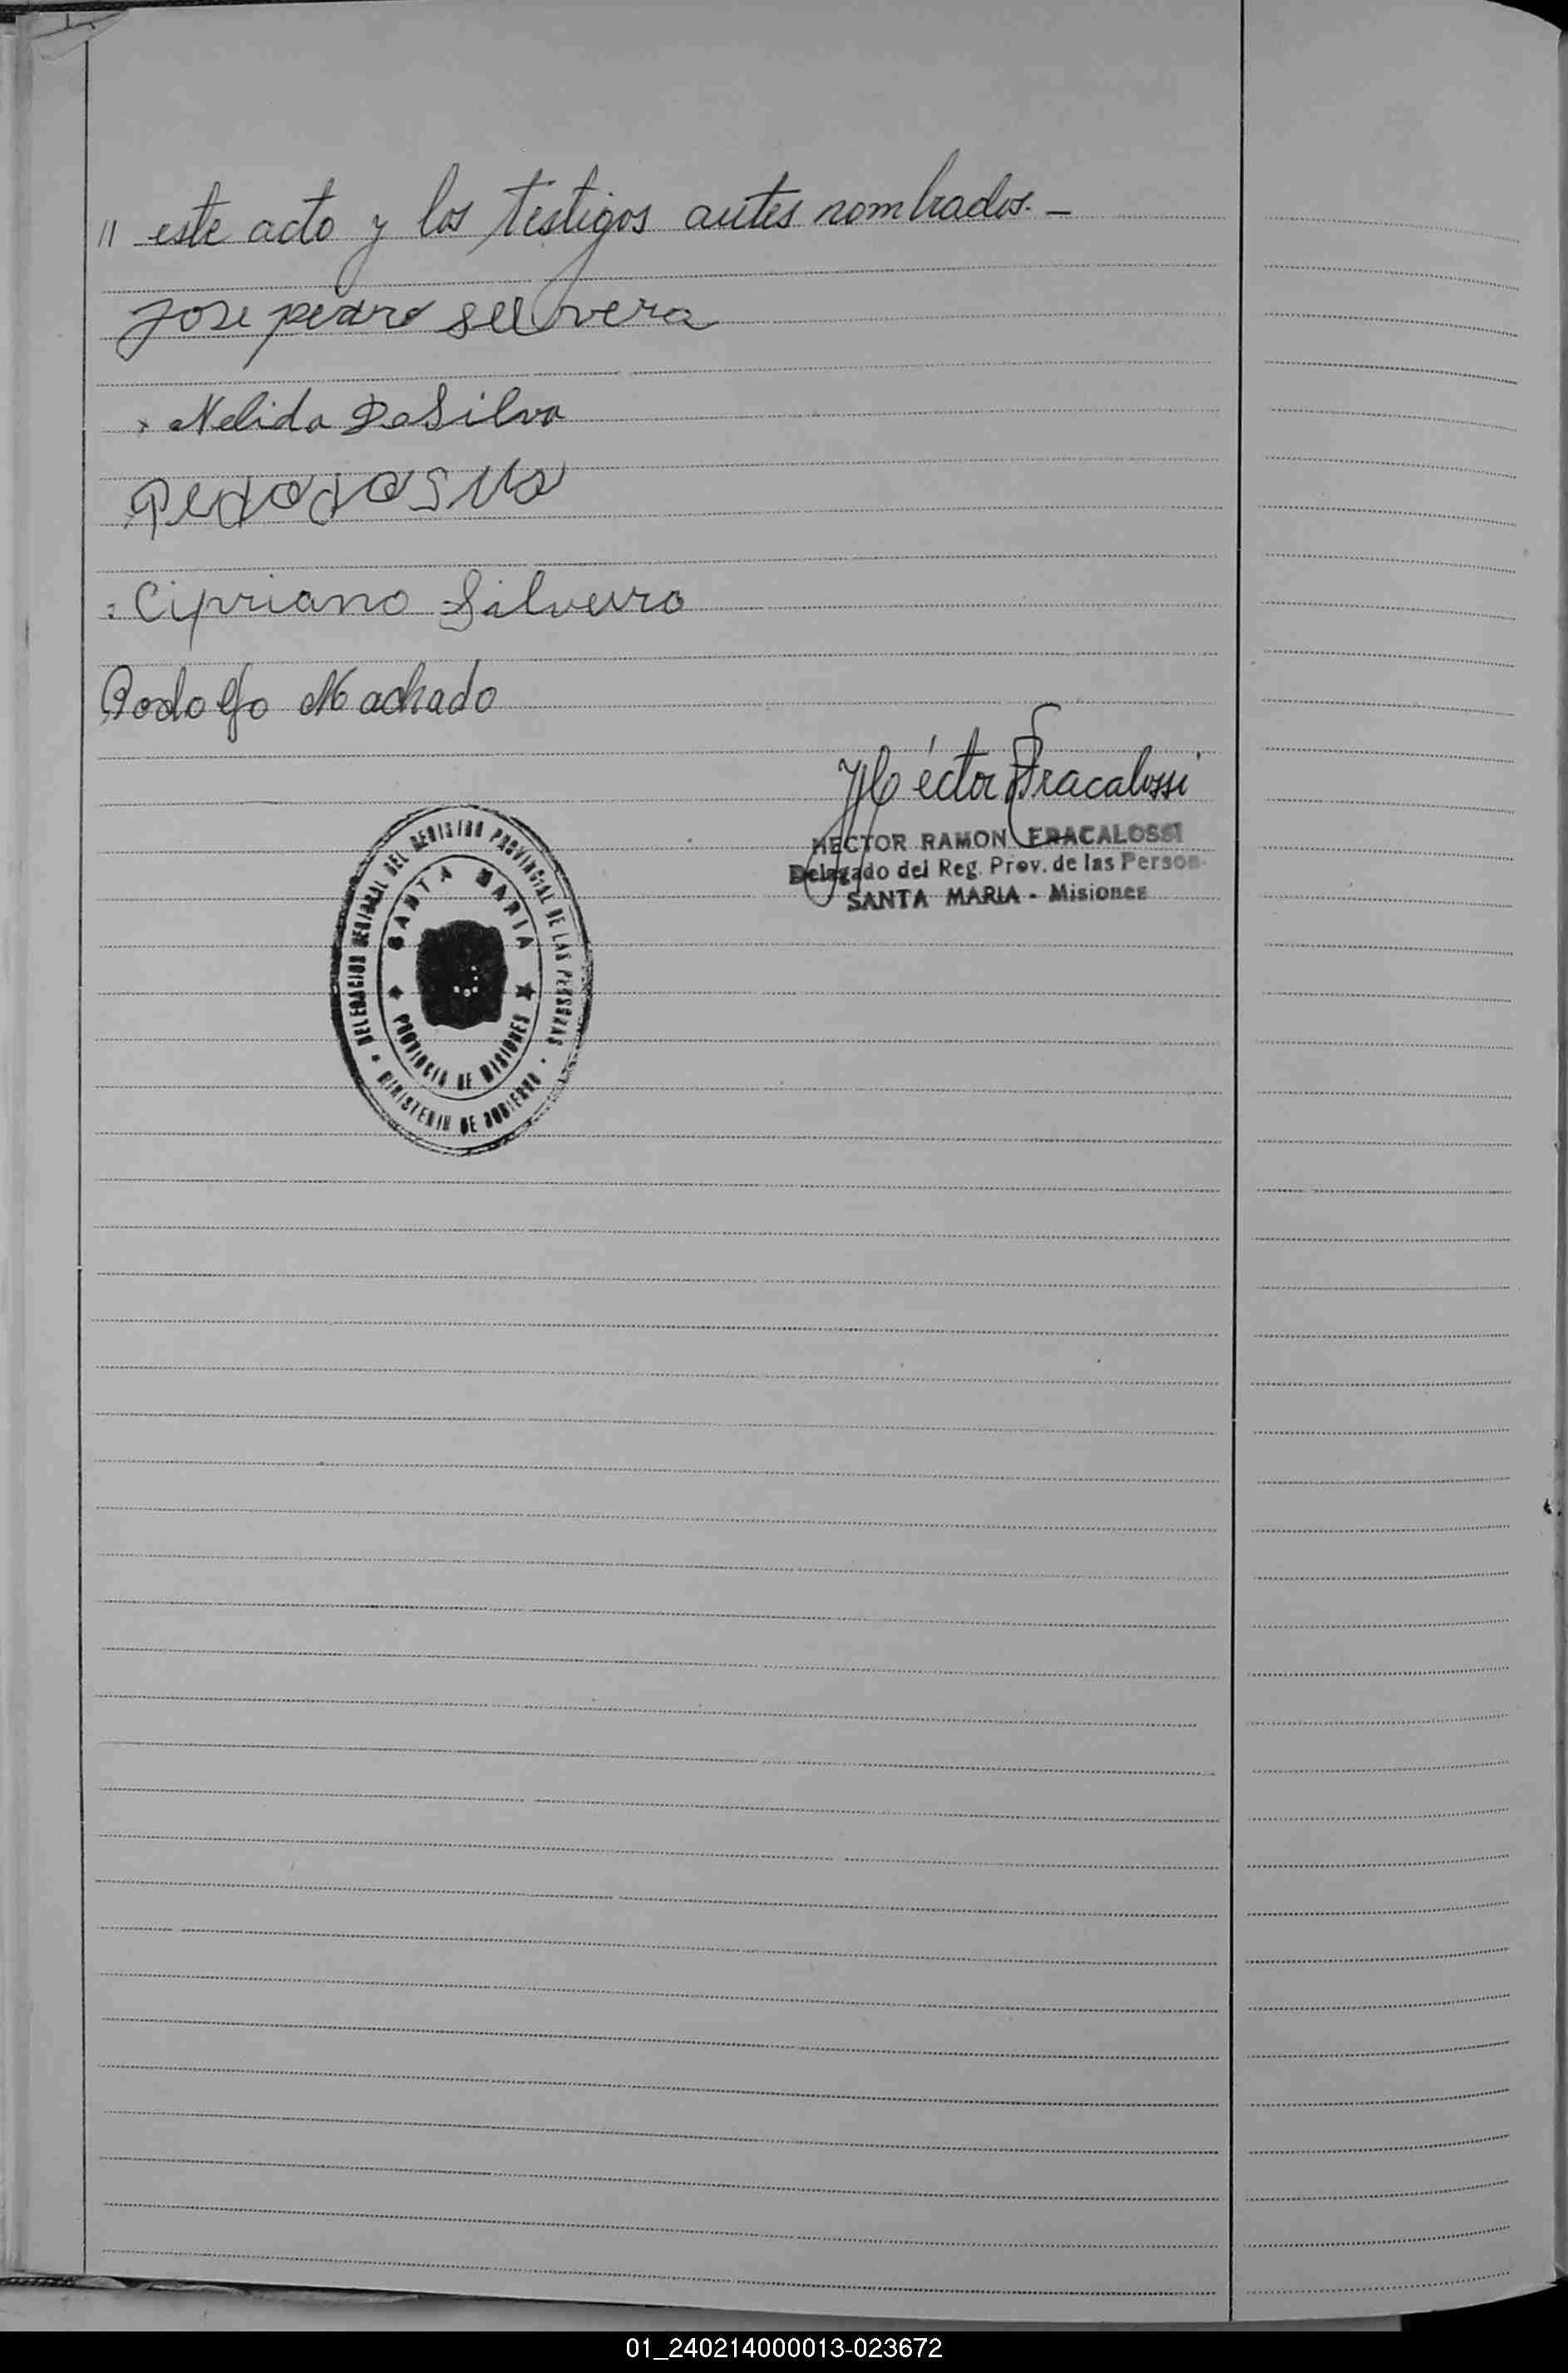 // este acto y los testigos antes nombrados. -
Jose pedro seelvera
Nelida DaSilva
Cipriano Silveira
Rodolfo Machado
Héctor Fracalossi
HECTOR RAMON FRACALOSSI
Delegado del Reg. Prov. de las Person
SANTA MARIA - Misiones
DELEGACION SECCIONAL DEL REGISTRO PROVINCIAL DE LAS PERSONAS
SANTA MARIA
PROVINCIA DE MISIONES
MINISTERIO DE GOBIERNO
01_240214000013-023672